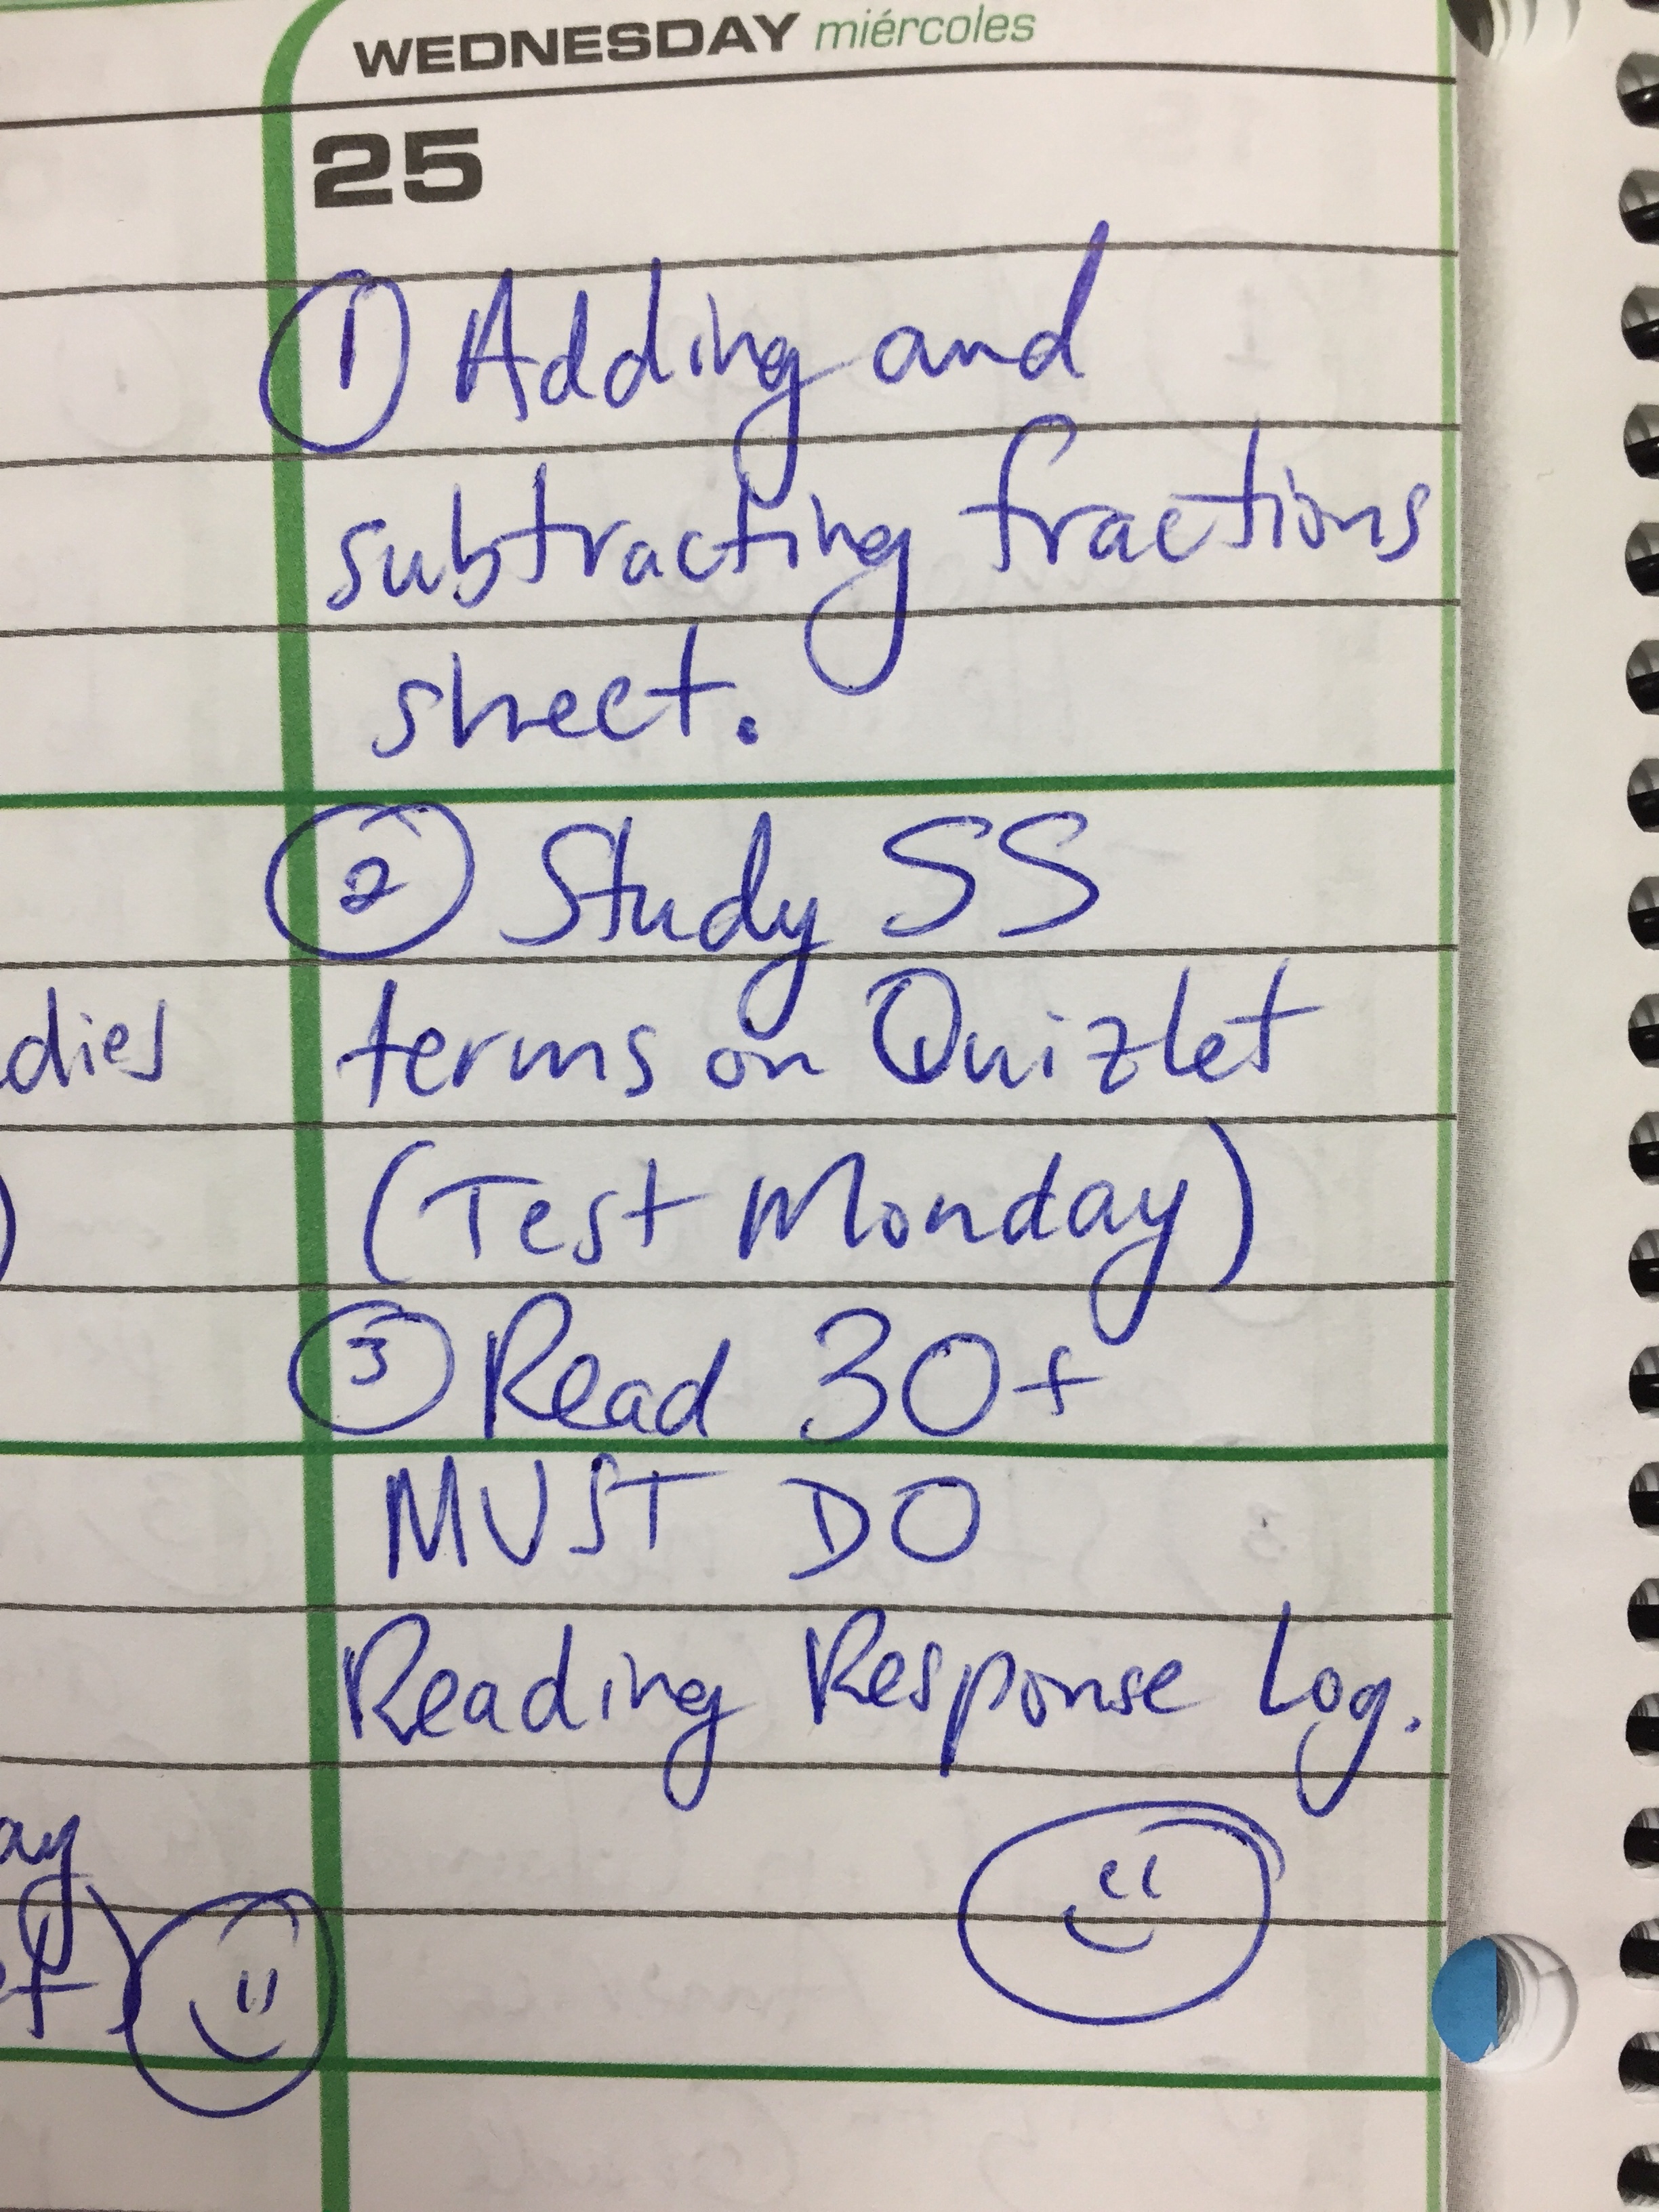 WEDNESDAY miércoles
25
1 Adding and
subtracting fractions
sheet.
2 Study SS
terms on Quizlet
(Test Monday)
3 Read 30+
MUST DO
Reading Response Log.
dies
)
ay
et)